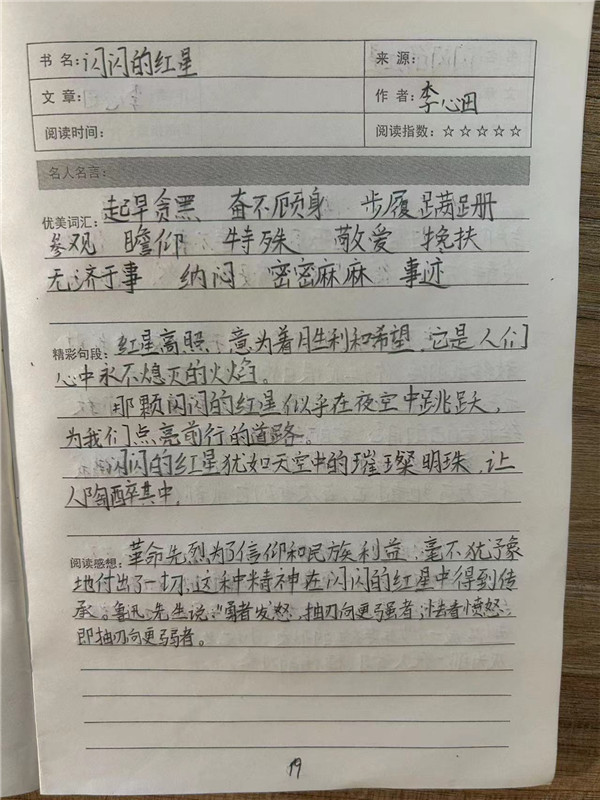 书 名: 闪闪的红星 来 源:
文 章: 作 者: 李心田
阅读时间: 阅读指数: ☆☆☆☆☆
名人名言:
优美词汇: 起早贪黑 奋不顾身 步履蹒跚
参观 瞻仰 特殊 敬爱 搀扶
无济于事 纳闷 密密麻麻 事迹
精彩句段: 红星高照、意为着胜利和希望,它是人们
心中永不熄灭的火焰。
那颗闪闪的红星似乎在夜空中跳跃,
为我们点亮前行的道路。
闪闪的红星犹如天空中的璀璨明珠,让
人陶醉其中,
阅读感想: 革命先烈为了信仰和民族利益、毫不犹予象
地付出了一切,这种精神在闪闪的红星中得到传
承。鲁迅先生说:“勇者发怒,抽刃向更强者;怯者愤怒,
即抽刃向更弱者。
19